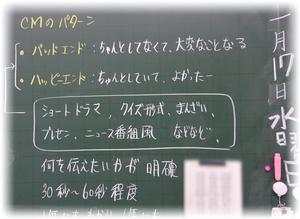 CMのパターン
・バッドエンド：ちゃんとしてなくて、大変なことなる
・ハッピーエンド：ちゃんとしていて、よかったー
ショートドラマ、クイズ形式、まんざい、
プレゼン、ニュース番組風 などなど、
何を伝えたいかが明確
30秒〜60秒程度
月17日水曜日